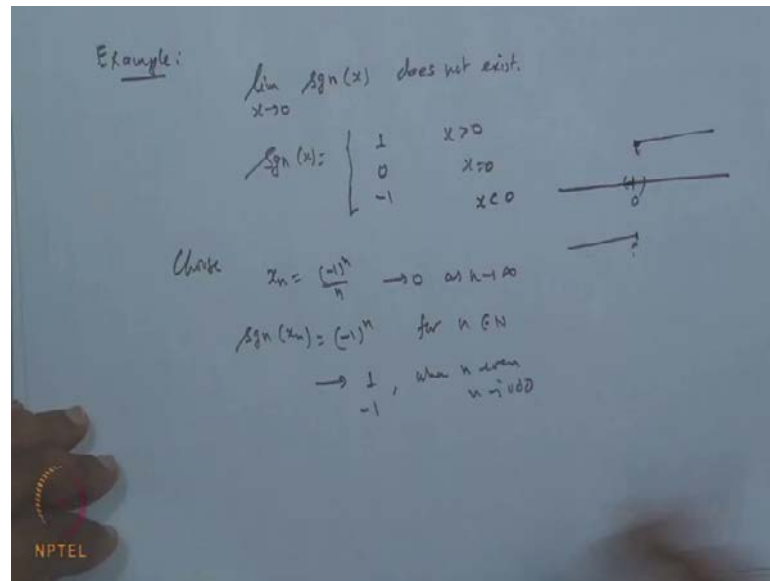 Example:
lim sgn(x) does not exist.
x→0
sgn(x) = { 1 x>0
0 x=0
-1 x<0
0
Choose xₙ = (-1)ⁿ/n → 0 as n→∞
sgn(xₙ) = (-1)ⁿ for n ∈ N
→ 1, when n even
-1 n is odd
NPTEL